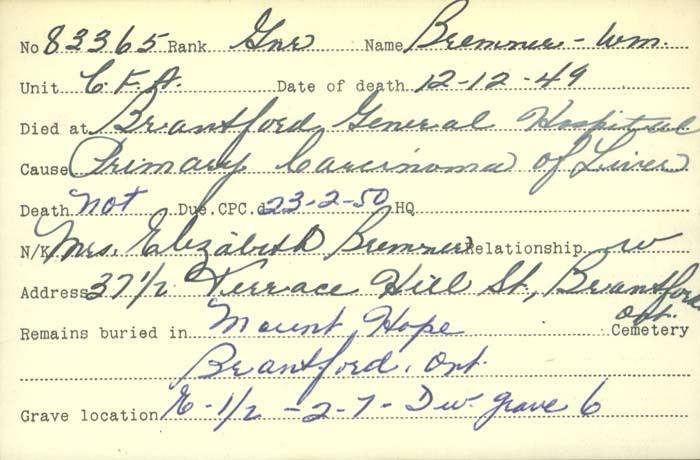 No 83365 Rank Gnr Name Bremner - Wm.
Unit C.F.A. Date of death 12-12-49
Died at Brantford General Hospital
Cause Primary Carcinoma of Liver
Death not Due CPC d 23-2-50 HQ
N/K Mrs. Elizabeth Bremner Relationship w
Address 37 1/2 Terrace Hill St., Brantford Ont.
Remains buried in Mount Hope Cemetery
Brantford, Ont.
Grave location E - 1/2 - 2 - 7 - Dw. grave 6